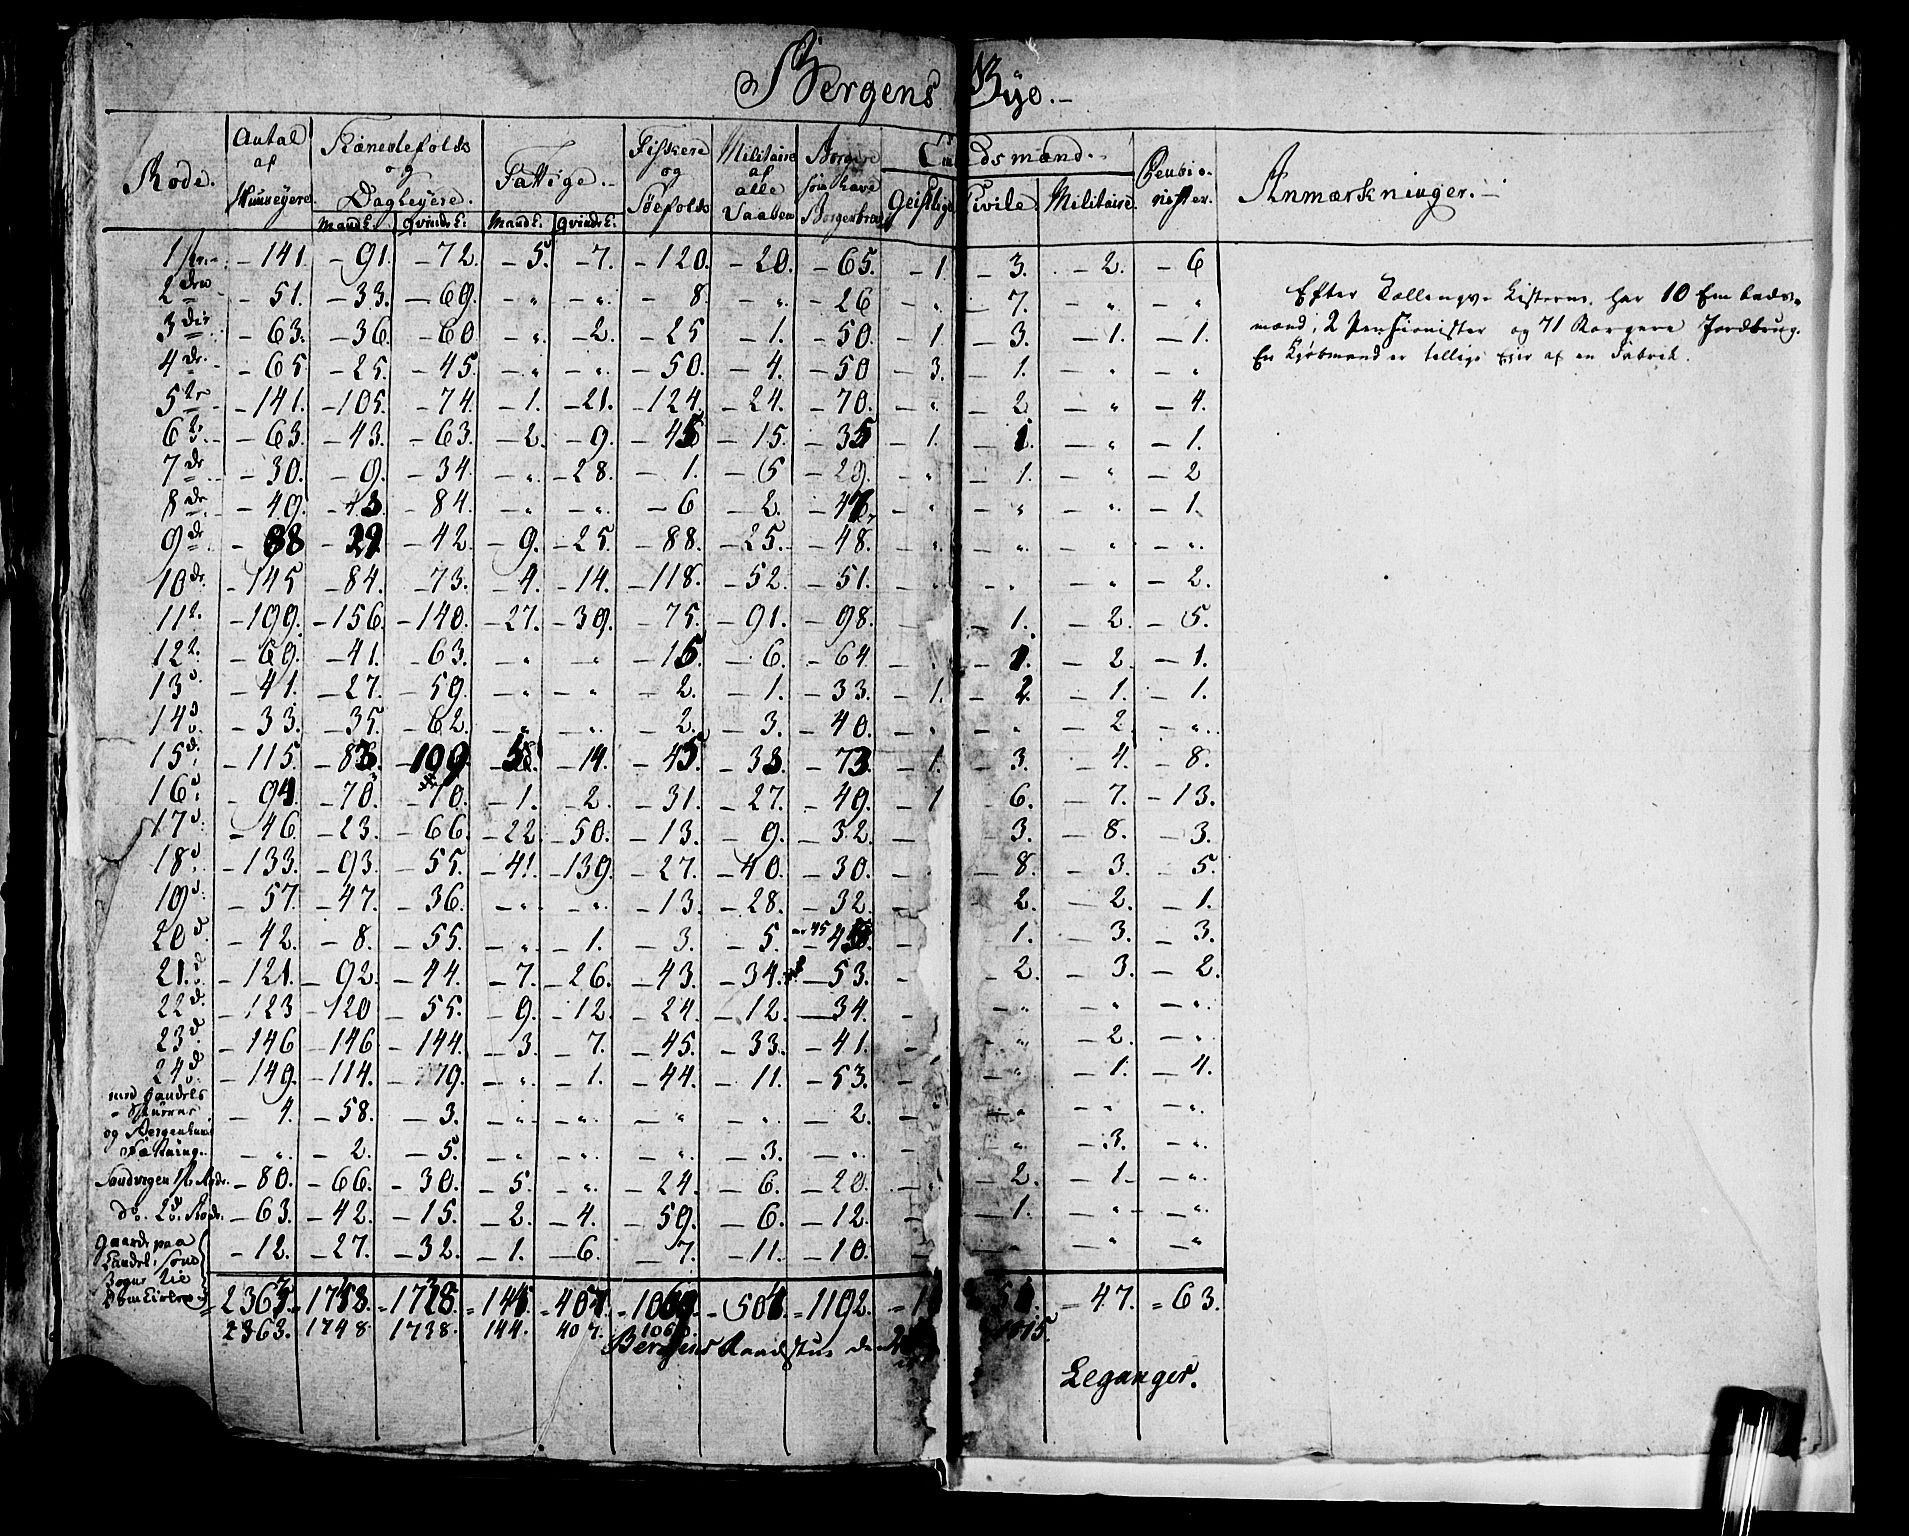 Bergens Bye.
Rode. Antal af Huuseyere Tienestefolk og Dagleyere. Fattige. Fiskere og Søefolk Militaire af alle Vaaben Borgere som have Borgerbrev Embedsmænd. Pensionister. Anmærkninger.
Mandk: Qvindek: Mandk: Qvindek: Geistlige Civile Militaire.
1ste 141. 91. 72. 5. 7. 120. 20. 65. 1. 3. 2. 6
2den 51. 33. 69. " " 8. " 26 " 7. " "
3die 63. 36. 60 " 2. 25 1. 50. 1 3. 1. 1.
4de 65. 25. 45. " " 50. 4. 50 3. 1. " "
5te 141. 105. 74. 1. 21. 124. 24. 70. " 2. " 4.
6te 63. 43. 63. 2. 9. 45 15. 35 1. 1. " 1.
7de 30. 9. 34. " 28. 1. 5 29. " 1. " 2
8de 49. 43. 84. " " 6 2. 47. " " " 1.
9de 88 29 42. 9. 25. 88. 25. 48. " " " "
10de 145 84. 73. 4. 14. 118. 52. 51. " " " 2.
11te 199. 156. 140. 27. 39. 75. 91. 98. 1. 2. 5.
12te 69. 41. 63. " " 15. 6. 64. " 1. 2. 1.
13d. 41. 27. 59. " " 2. 1. 33. 1. 2. 1. 1.
14d. 33. 35. 62. " " 2. 3. 40. " 2. "
15d. 115. 83. 109. 58 14. 45. 33. 73. 1. 3. 4. 8.
16d. 94. 70. 70. 1. 2. 31. 27. 49. 1 6. 7. 13.
17d. 46. 23. 66. 22. 50. 13. 9. 32. 3. 8. 3.
18d. 133. 93. 55. 41. 139. 27. 40. 30. 8. 3. 5.
19d. 57. 47. 36. " " 13. 28. 32. 2. 2. 1.
20d. 42. 8. 55. " 1. 3. 5. 45 1. 3. 3.
21d. 121. 92. 44. 7. 26. 43. 34. 53. 2. 3. 2.
22d. 123 120 55. 9. 12. 24. 12. 34. " " "
23d. 146 146 144. 3. 7. 45. 33. 41. " 2. "
24d. 149. 114. 79. " 1. 44. 11. 53. " 1. 4.
4. 58. 3. " " " " 2. " " "
og Bergenhuus Fæstning. " 2. 5. " " " 3. " " 3. "
Sandvigen 1ste Rode. 80. 66. 30. 5. " 24. 6. 20. 2. 1. "
do. 2d. Rode. 63. 42. 15. 2. 4. 59. 6. 12. 1. " "
Gaarde paa Landet, 12. 27. 32. 1. 6. 7. 11. 10. " "
1192. 47. 63.
2363. 1748. 1738. 144. 407.
Bergens Raadstue den
Leganger.
Efter Tællings Listerne, har 10 Embeds-
mænd, 2 Pensionister og 71 Borgere Jordbrug.
En Kjøbmand er tillige Eier af en Fabrik.